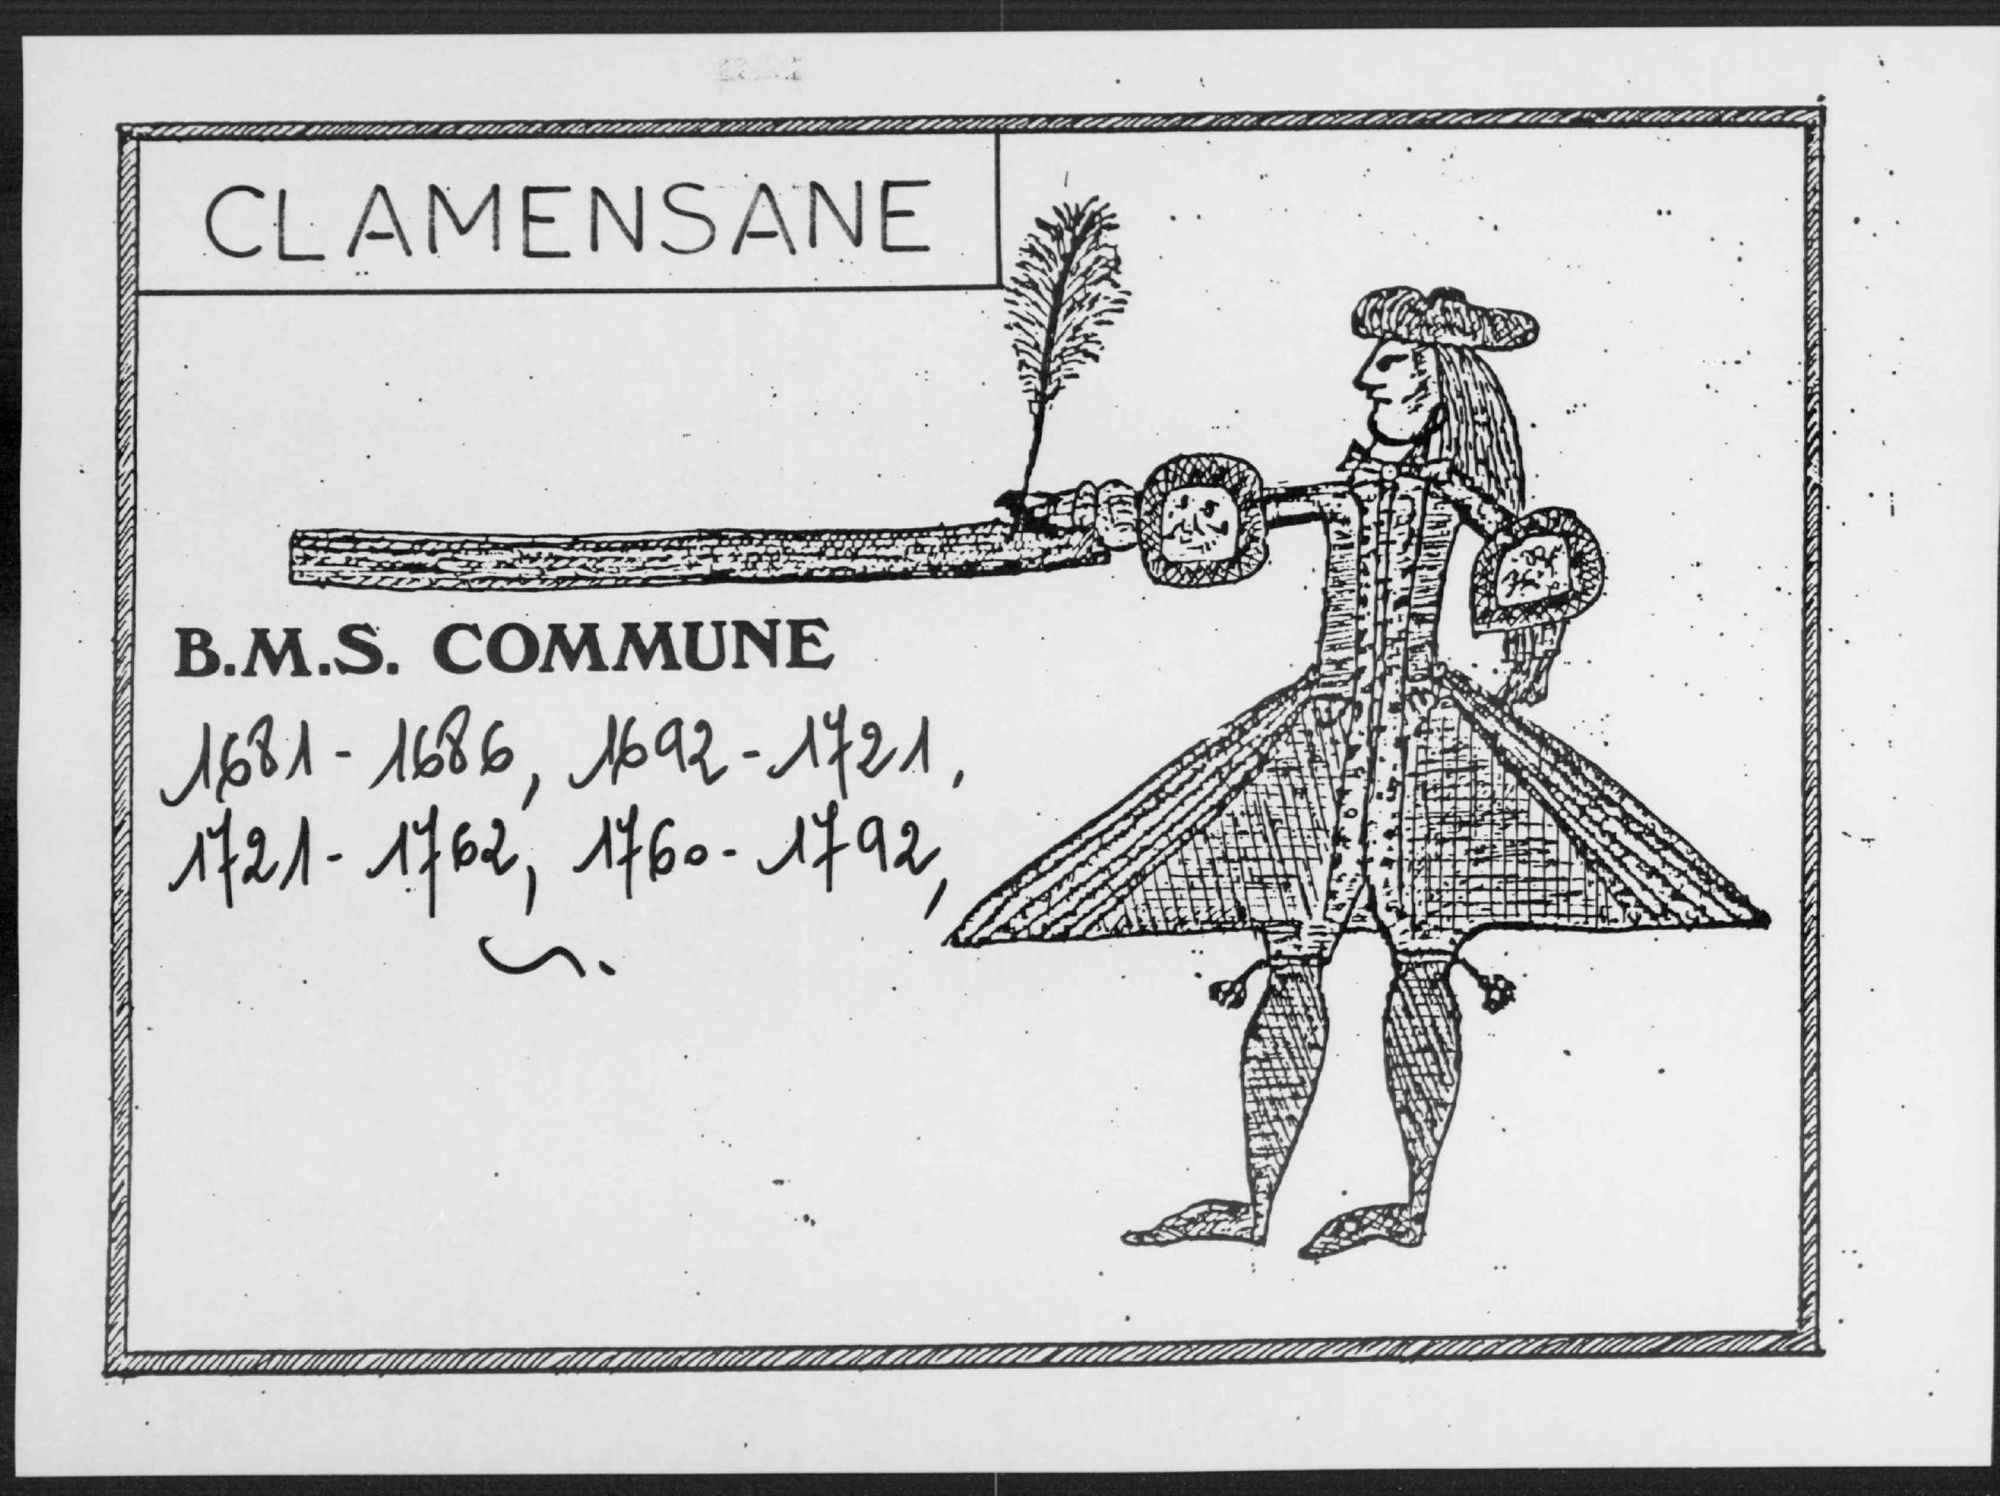 CLAMENSANE
B.M.S. COMMUNE
1681 - 1686, 1692 - 1721,
1721 - 1762, 1760 - 1792,